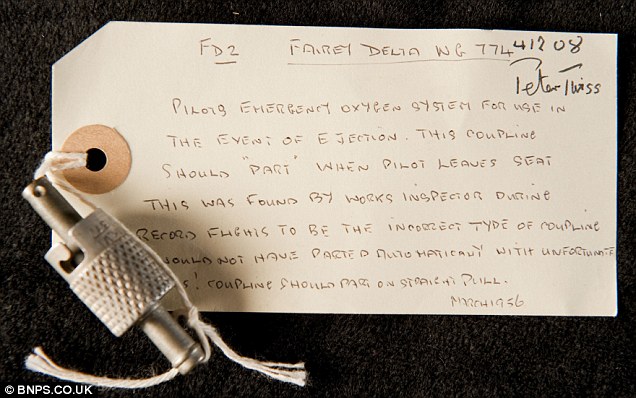 FD2 FAIREY DELTA WG 774 41208
Peter Twiss
PILOTS EMERGENCY OXYGEN SYSTEM FOR USE IN
THE EVENT OF EJECTION. THIS COUPLING
SHOULD "PART" WHEN PILOT LEAVES SEAT
THIS WAS FOUND BY WORKS INSPECTOR DURING
RECORD FLIGHTS TO BE THE INCORRECT TYPE OF COUPLING
WOULD NOT HAVE PARTED AUTOMATICALY WITH UNFORTUNATE
! COUPLING SHOULD PART ON STRAIGHT PULL.
MARCH 1956
© BNPS.CO.UK